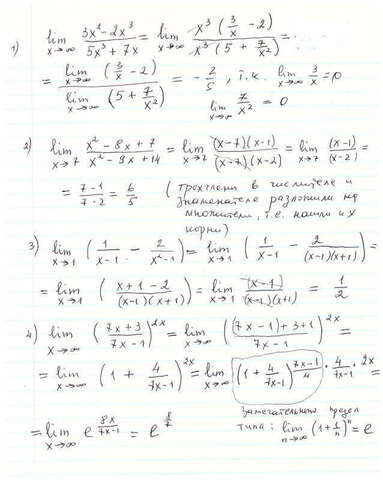 1) lim x→∞ (3x² - 2x³)/(5x³ + 7x) = lim x→∞ x³(3/x - 2)/x³(5 + 7/x²) =
= lim x→∞ (3/x - 2) / lim x→∞ (5 + 7/x²) = -2/5, т.к. lim x→∞ 3/x = 0
lim x→∞ 7/x² = 0
2) lim x→7 (x² - 8x + 7)/(x² - 9x + 14) = lim x→7 (x-7)(x-1)/(x-7)(x-2) = lim x→7 (x-1)/(x-2) =
= (7-1)/(7-2) = 6/5 (трехчлены в числителе и
знаменателе разложили на
множители, т.е. нашли их
корни)
3) lim x→1 (1/(x-1) - 2/(x²-1)) = lim x→1 (1/(x-1) - 2/(x-1)(x+1)) =
= lim x→1 (x+1-2)/((x-1)(x+1)) = lim x→1 (x-1)/(x-1)(x+1) = 1/2
4) lim x→∞ ((7x+3)/(7x-1))^2x = lim x→∞ (((7x-1)+3+1)/(7x-1))^2x =
= lim x→∞ (1 + 4/(7x-1))^2x = lim x→∞ (1 + 4/(7x-1))^((7x-1)/4 · 4/(7x-1) · 2x) =
= lim x→∞ e^(8x/(7x-1)) = e^(8/7)
Замечательный предел
типа: lim n→∞ (1 + 1/n)^n = e